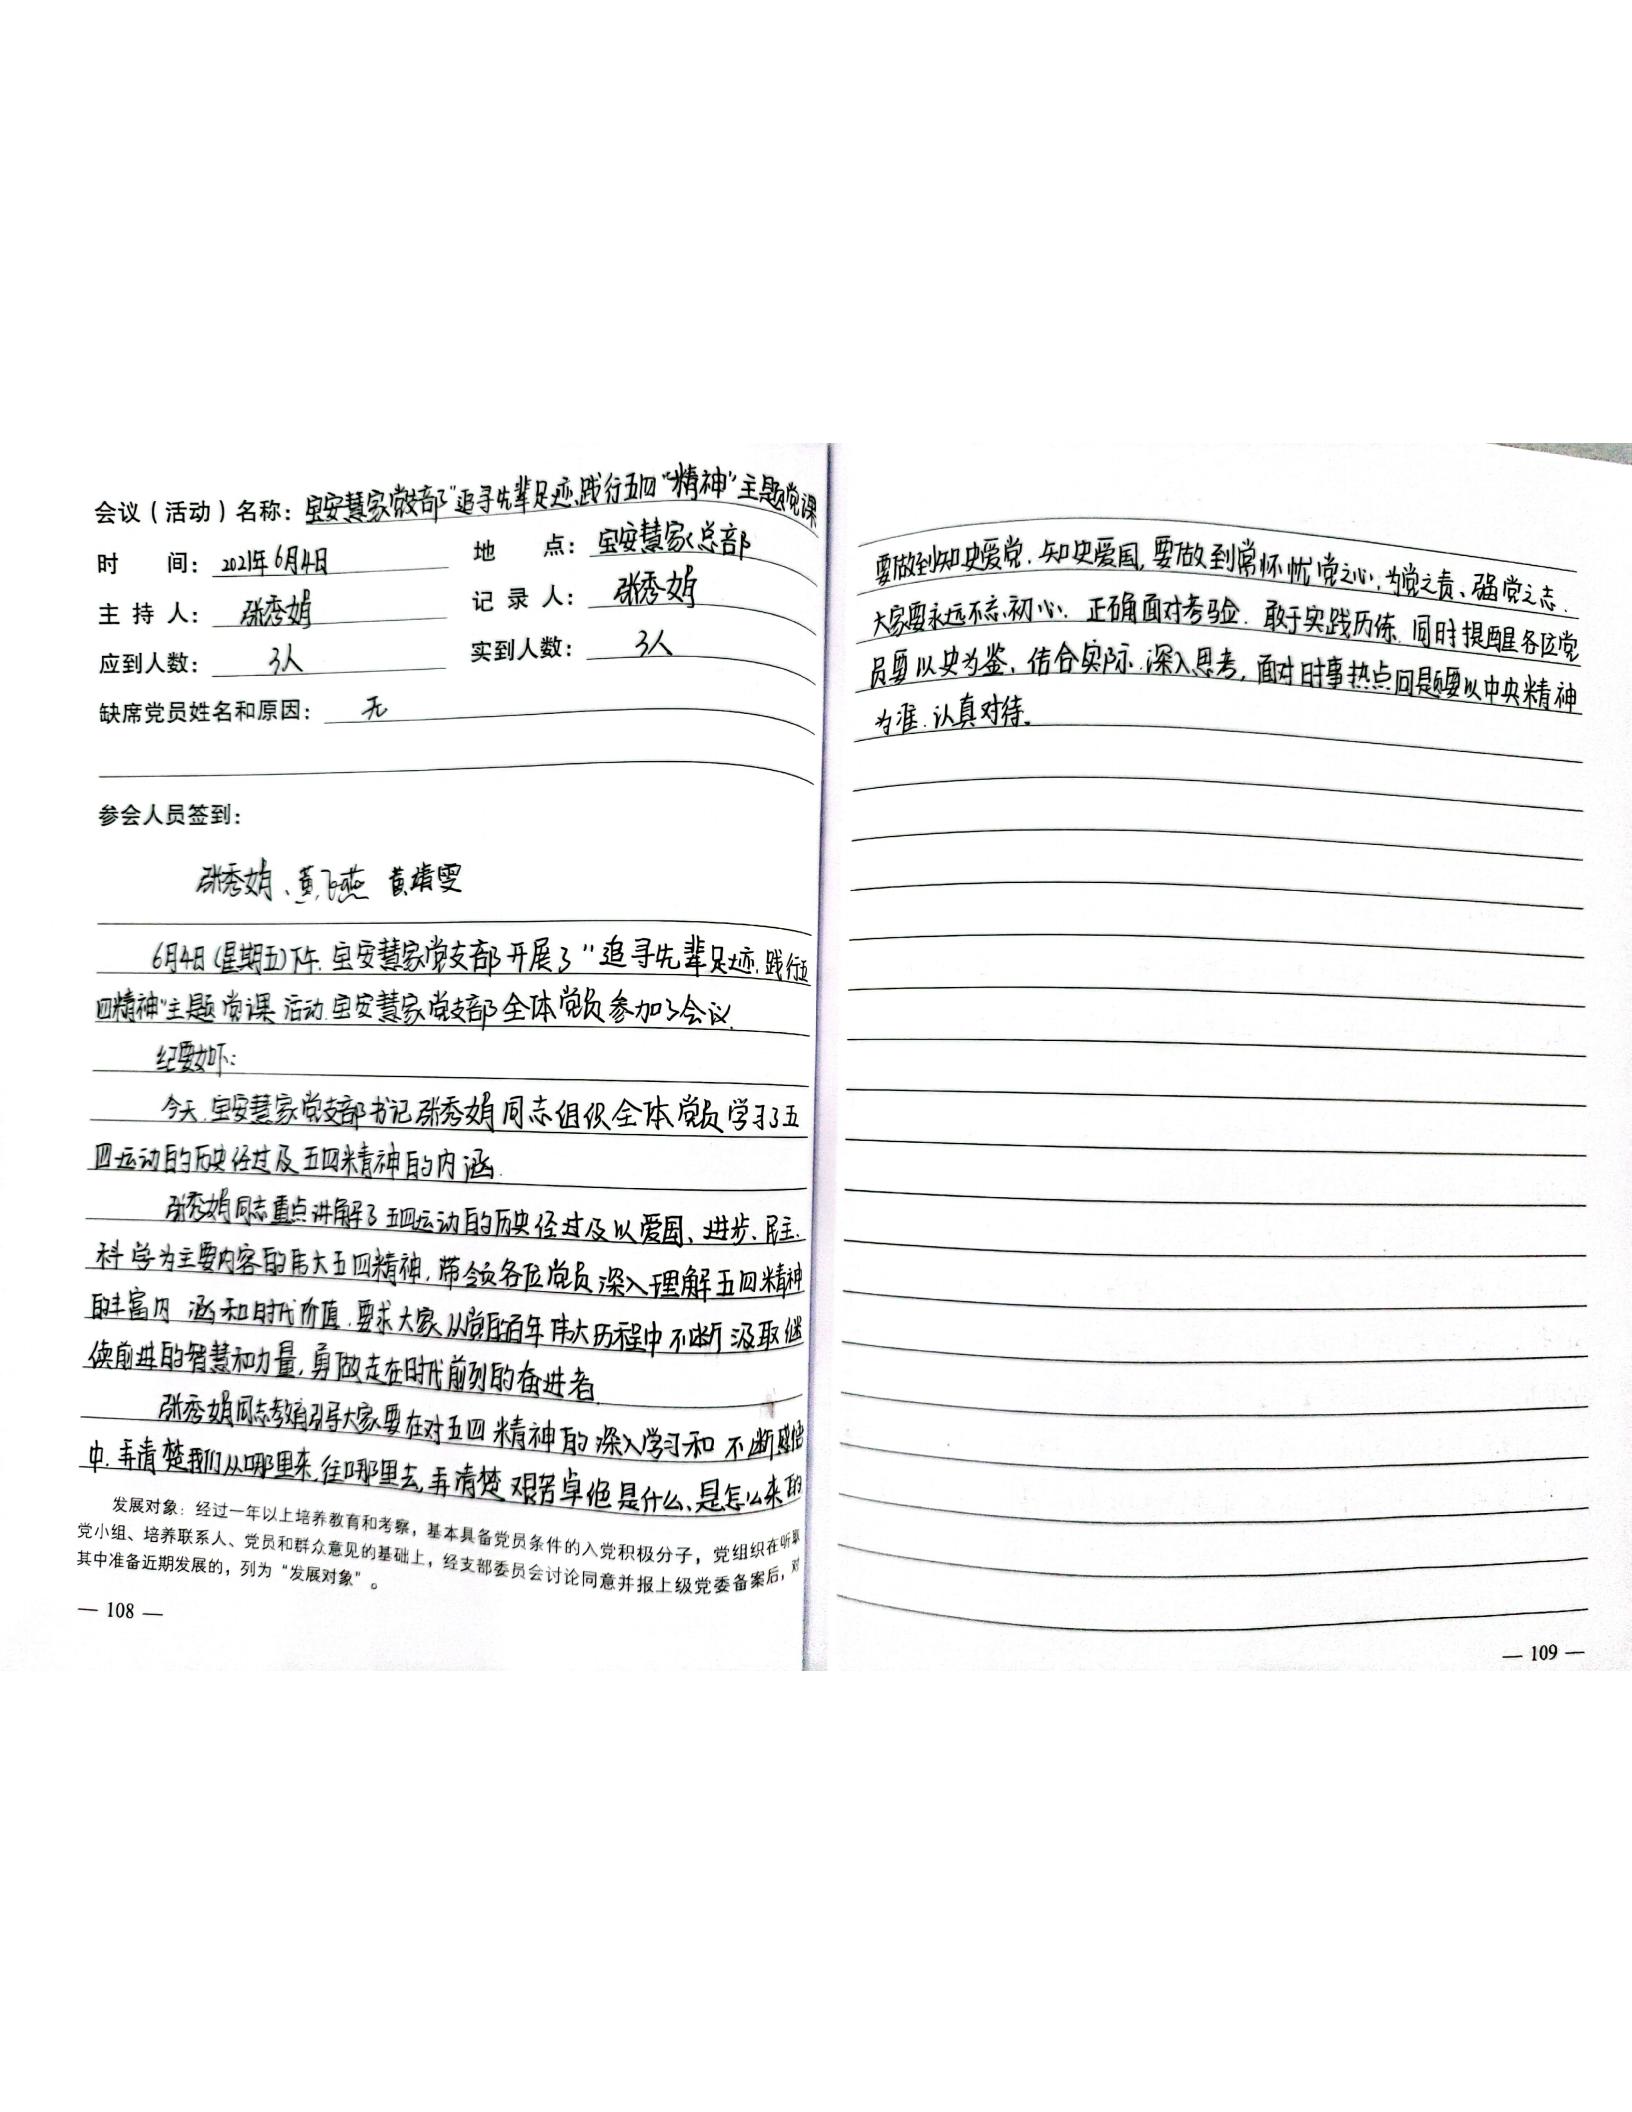 会议（活动）名称：宝安慧家党支部"追寻先辈足迹,践行五四"精神"主题党课
时　　间：2021年6月4日　地　　点：宝安慧家总部
主 持 人：张秀娟　记 录 人：张秀娟
应到人数：3人　实到人数：3人
缺席党员姓名和原因：无
参会人员签到：
张秀娟、黄飞燕 黄靖雯
6月4日(星期五)下午.宝安慧家党支部开展了"追寻先辈足迹,践行五
四精神"主题党课活动.宝安慧家党支部全体党员参加了会议.
纪要如下:
今天.宝安慧家党支部书记张秀娟同志组织全体党员学习了五
四运动的历史经过及五四精神的内涵.
张秀娟同志重点讲解了五四运动的历史经过及以爱国、进步、民主、
科学为主要内容的伟大五四精神,带领各位党员深入理解五四精神
的丰富内涵和时代价值.要求大家从党的百年伟大历程中不断汲取继
续前进的智慧和力量,勇做走在时代前列的奋进者.
张秀娟同志教育引导大家要在对五四精神的深入学习和不断感悟
中.弄清楚我们从哪里来,往哪里去,弄清楚艰苦卓绝是什么、是怎么来的
发展对象：经过一年以上培养教育和考察，基本具备党员条件的入党积极分子，党组织在听取
党小组、培养联系人、党员和群众意见的基础上，经支部委员会讨论同意并报上级党委备案后，对
其中准备近期发展的，列为“发展对象”。
— 108 —
要做到知史爱党.知史爱国,要做到常怀忧党之心,为党之责、强党之志.
大家要永远不忘初心.正确面对考验.敢于实践历练.同时提醒各位党
员要以史为鉴、结合实际.深入思考,面对时事热点问题要以中央精神
为准.认真对待.
— 109 —